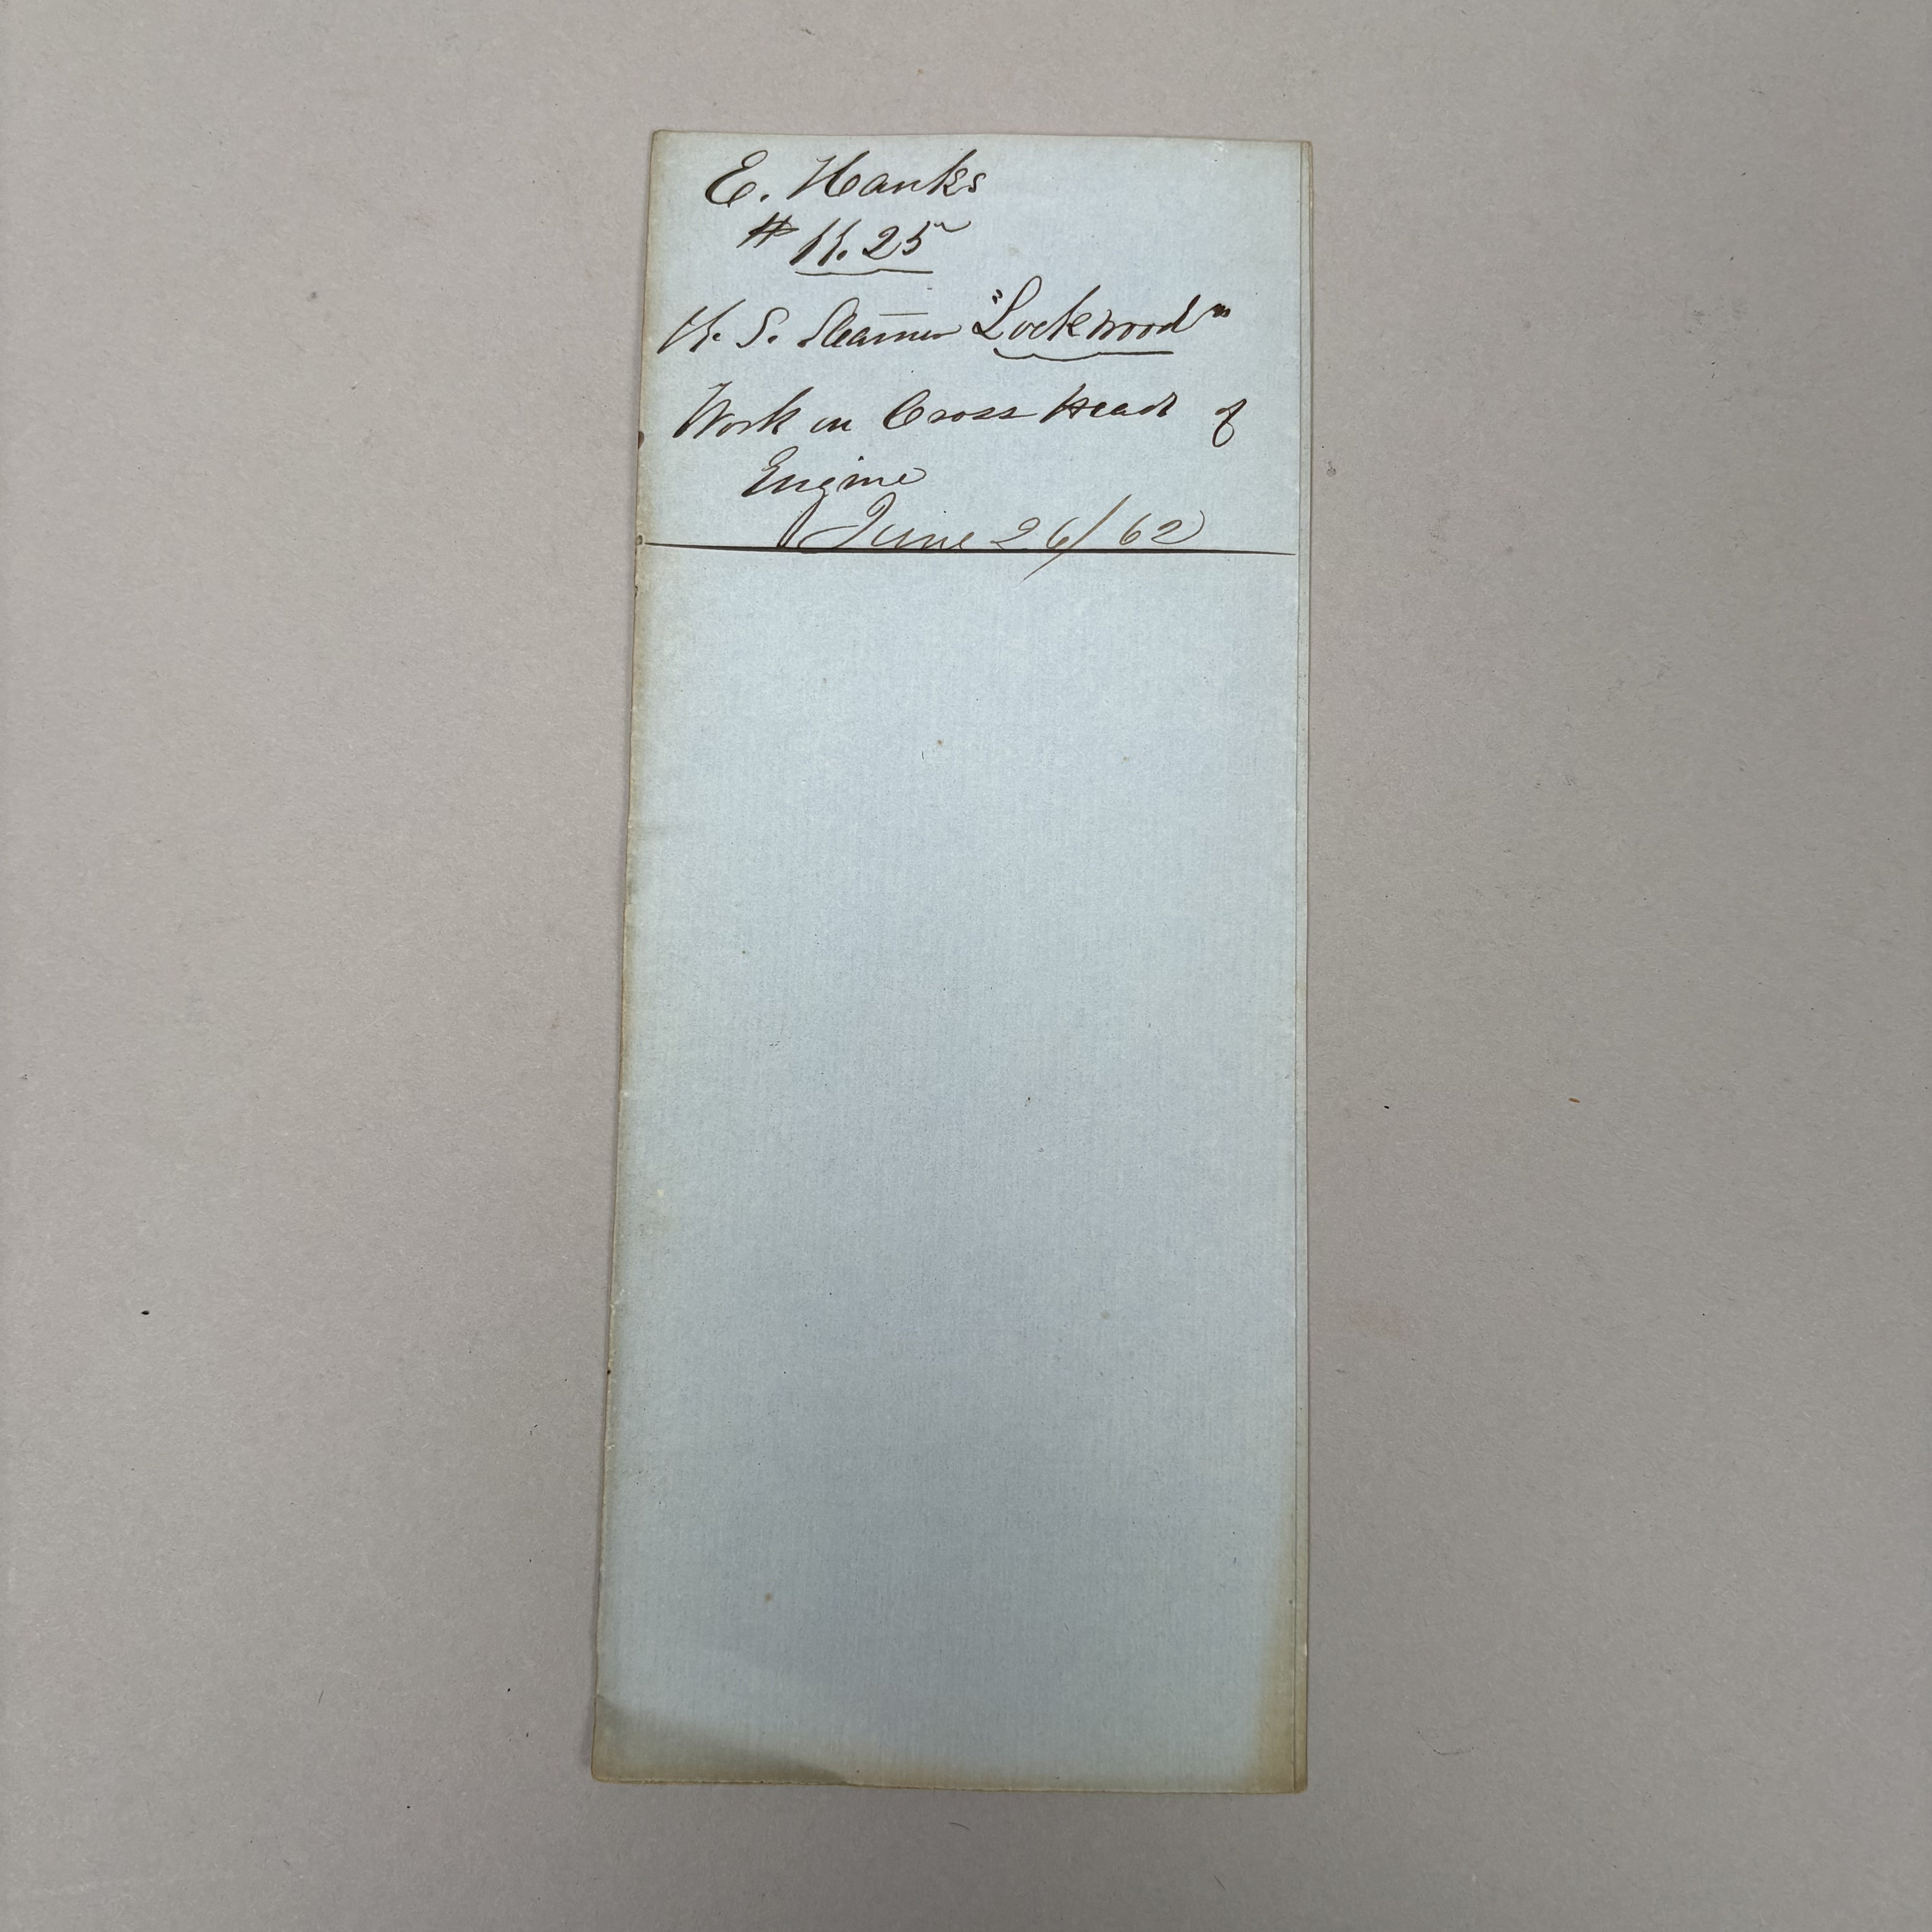 E. Hanks
# 11.25
U. S. Steamer "Lockwood"
Work on Cross Head of
Engine
June 26/62